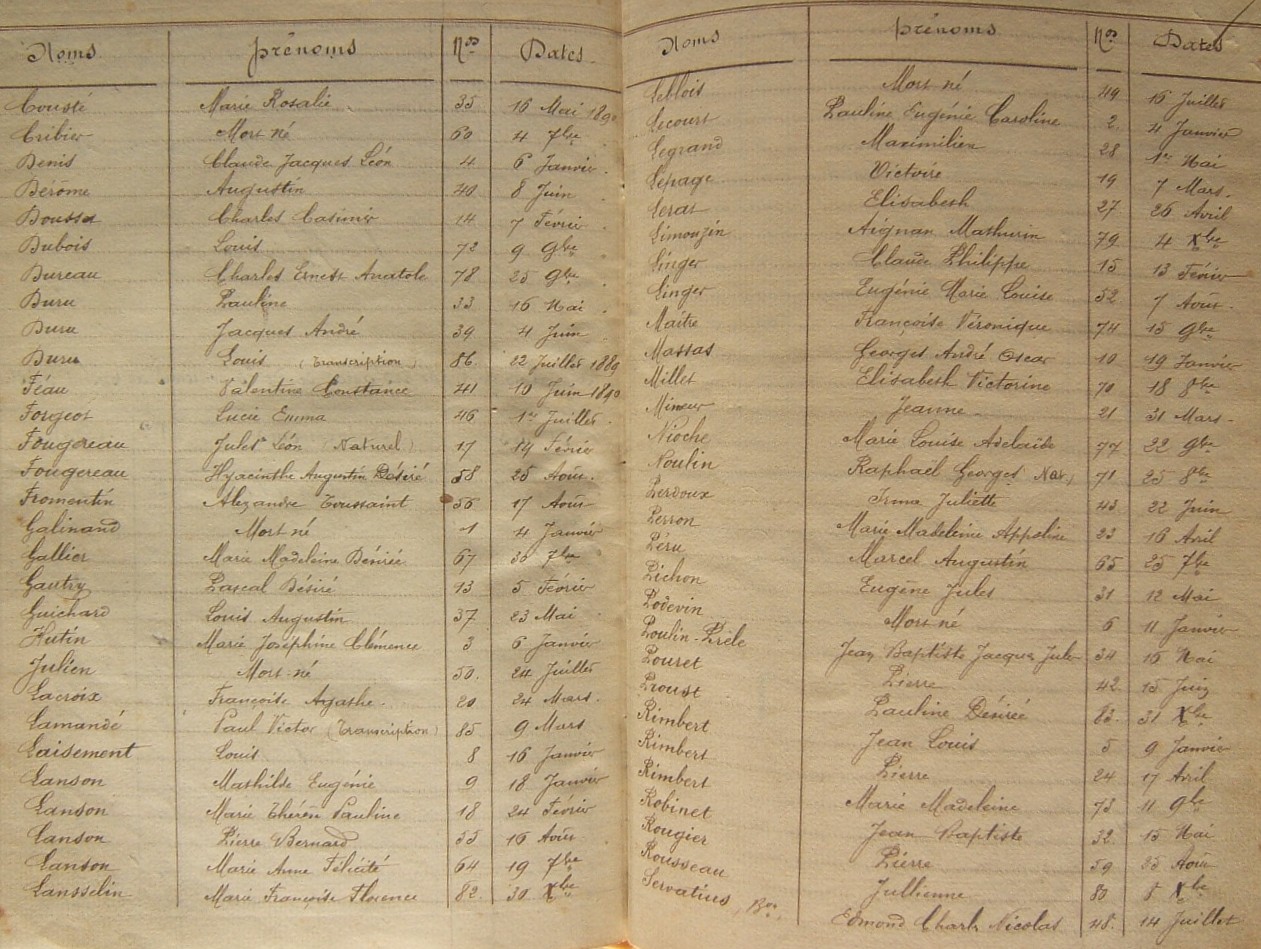 Noms Prénoms Nos Dates
Cousté Marie Rosalie 35 16 Mai 1890
Cribier Mort né 60 4 7bre
Denis Claude Jacques Léon 4 6 Janvier
Dérôme Augustin 40 8 Juin
Doussa Charles Casimir 14 7 Février
Dubois Louis 72 9 9bre
Dureau Charles Ernest Anatole 78 25 9bre
Duru Pauline 33 16 Mai
Duru Jacques André 39 4 Juin
Duru Louis (Transcription) 86 22 Juillet 1889
Féau Valentine Constance 41 10 Juin 1890
Forgeot Lucie Emma 46 1er Juillet
Fougereau Jules Léon (Naturel) 17 14 Février
Fougereau Hyacinthe Augustin Désiré 58 25 Août
Fromentin Alexandre Toussaint 56 17 Août
Galinand Mort né 1 4 Janvier
Gallier Marie Madeleine Désirée 67 30 7bre
Gautry Pascal Désiré 13 5 Février
Guichard Louis Augustin 37 23 Mai
Hutin Marie Joséphine Clémence 3 6 Janvier
Julien Mort-né 50 24 Juillet
Lacroix Françoise Agathe 20 24 Mars
Lamandé Paul Victor (Transcription) 85 9 Mars
Laisement Louis 8 16 Janvier
Lanson Mathilde Eugénie 9 18 Janvier
Lanson Marie Pauline 18 24 Février
Lanson Pierre Bernard 55 16 Août
Lanson Marie Anne Félicité 64 19 7bre
Lansselin Marie Françoise Florence 82 30 Xbre
Noms Prénoms Nos Dates
Leblois Mort né 49 16 Juillet
Lecourt Pauline Eugénie Caroline 2 4 Janvier
Legrand Maximilien 28 1er Mai
Lépage Victoire 19 7 Mars
Lerat Elisabeth 27 26 Avril
Limoujin Aignan Mathurin 79 4 Xbre
Linger Claude Philippe 15 13 Février
Linger Eugénie Marie Louise 52 7 Août
Maître Françoise Véronique 74 15 9bre
Massas Georges André Oscar 10 19 Janvier
Millet Elisabeth Victorine 70 18 8bre
Mineur Jeanne 21 31 Mars
Nioche Marie Louise Adelaïde 77 22 9bre
Noulin Raphaël Georges Nat. 71 25 8bre
Perdoux Irma Juliette 43 22 Juin
Perron Marie Madeleine Appoline 23 16 Avril
Péru Marcel Augustin 65 25 7bre
Pichon Eugène Jules 31 12 Mai
Podevin Mort né 6 11 Janvier
Poulin-Prêle Jean Baptiste Jacques Jules 34 16 Mai
Pouret Pierre 42 15 Juin
Proust Pauline Désirée 83 31 Xbre
Rimbert Jean Louis 5 9 Janvier
Rimbert Pierre 24 17 Avril
Rimbert Marie Madeleine 73 11 9bre
Robinet Jean Baptiste 32 15 Mai
Rougier Pierre 59 25 Août
Rousseau Julienne 80 8 Xbre
Servatius, Bon Edmond Charles Nicolas 48 14 Juillet